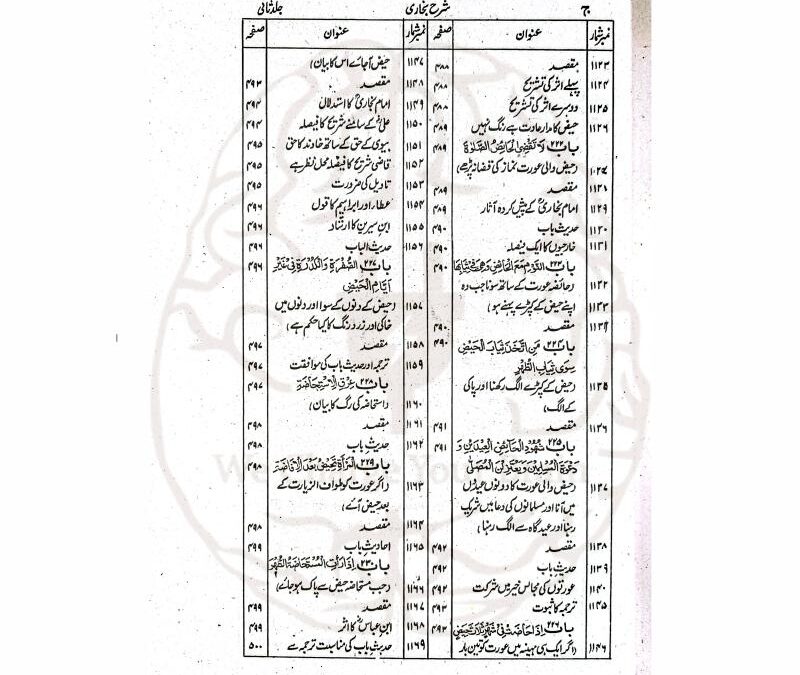 شرح بخاری
جلد ثانی
نمبر شمار عنوان صفحہ
۱۱۲۳ مقصد ۴۸۸
۱۱۲۴ پہلے اثر کی تشریح ۴۸۸
۱۱۲۵ دوسرے اثر کی تشریح ۴۸۸
۱۱۲۶ حیض کا مدار عادت ہے رنگ نہیں ۴۸۹
باب ۲۲۲ لَا تَقْضِی الْحَائِضُ الصَّلٰوةَ ۴۸۹
(حیض والی عورت نماز کی قضا نہ پڑھے)
مقصد ۴۸۹
۱۱۲۹ امام بخاریؒ کے پیش کردہ آثار ۴۸۹
۱۱۳۰ حدیث باب ۴۹۰
۱۱۳۱ خارجیوں کا ایک فیصلہ ۴۹۰
باب ۲۲۳ النَّوْمِ مَعَ الْحَائِضِ وَهِیَ فِیْ ثِیَابِهَا ۴۹۰
۱۱۳۲ (حائضہ عورت کے ساتھ سونا جب وہ
۱۱۳۳ اپنے حیض کے کپڑے پہنے ہو)
۱۱۳۴ مقصد ۴۹۰
باب ۲۲۴ مَنِ اتَّخَذَ ثِیَابَ الْحَیْضِ ۴۹۰
سِوٰی ثِیَابِ الطُّهْرِ
۱۱۳۵ (حیض کے کپڑے الگ رکھنا اور پاکی
کے الگ)
۱۱۳۶ مقصد ۴۹۱
باب ۲۲۵ شُهُوْدِ الْحَائِضِ الْعِیْدَیْنِ وَ ۴۹۱
دَعْوَةَ الْمُسْلِمِیْنَ وَیَعْتَزِلْنَ الْمُصَلّٰی
۱۱۳۷ (حیض والی عورت کا دونوں عیدوں
میں آنا اور مسلمانوں کی دعا میں شریک
رہنا اور عیدگاہ سے الگ رہنا)
۱۱۳۸ مقصد ۴۹۲
۱۱۳۹ حدیث باب ۴۹۲
۱۱۴۰ عورتوں کی مجالس خیر میں شرکت ۴۹۲
۱۱۴۵ ترجمہ کا ثبوت ۴۹۳
باب ۲۲۶ اِذَا حَاضَتْ فِیْ شَهْرٍ ثَلَاثَ حِیَضٍ ۴۹۳
۱۱۴۶ (اگر ایک ہی مہینہ میں عورت کو تین بار
نمبر شمار عنوان صفحہ
۱۱۴۷ حیض آجائے اس کا بیان)
۱۱۴۸ مقصد ۴۹۳
۱۱۴۹ امام بخاریؒ کا استدلال ۴۹۴
۱۱۵۰ علیؓ کے سامنے شریح کا فیصلہ ۴۹۴
۱۱۵۱ بیوی کے حق کے ساتھ خاوند کا حق ۴۹۵
۱۱۵۲ قاضی شریح کا فیصلہ محل نظر ہے ۴۹۵
۱۱۵۳ تاویل کی ضرورت ۴۹۵
۱۱۵۴ عطار اور ابراہیم کا قول ۴۹۶
۱۱۵۵ ابن سیرین کا ارشاد ۴۹۶
۱۱۵۶ حدیث الباب ۴۹۶
باب ۲۲۷ الصُّفْرَةِ وَالْكُدْرَةِ فِیْ غَیْرِ ۴۹۶
اَیَّامِ الْحَیْضِ
۱۱۵۷ (حیض کے دنوں کے سوا اور دنوں میں
خاکی اور زرد رنگ کا کیا حکم ہے)
۱۱۵۸ مقصد ۴۹۷
۱۱۵۹ ترجمہ اور حدیث باب کی موافقت ۴۹۷
باب ۲۲۸ عِرْقِ الْاِسْتِحَاضَةِ ۴۹۷
۱۱۶۰ (استحاضہ کی رگ کا بیان)
۱۱۶۱ مقصد ۴۹۸
۱۱۶۲ حدیث باب ۴۹۸
باب ۲۲۹ الْمَرْأَةِ تَحِیْضُ بَعْدَ الْاِفَاضَةِ ۴۹۸
۱۱۶۳ (اگر عورت کو طواف الزیارت کے
بعد حیض آئے)
۱۱۶۴ مقصد ۴۹۸
۱۱۶۵ احادیث باب ۴۹۹
باب ۲۳۰ اِذَا رَأَتِ الْمُسْتَحَاضَةُ الطُّهْرَ
۱۱۶۶ (جب مستحاضہ حیض سے پاک ہوجائے) ۴۹۹
۱۱۶۷ مقصد ۴۹۹
۱۱۶۸ ابن عباسؓ کا اثر ۴۹۹
۱۱۶۹ حدیث باب کی مناسبت ترجمہ سے ۵۰۰